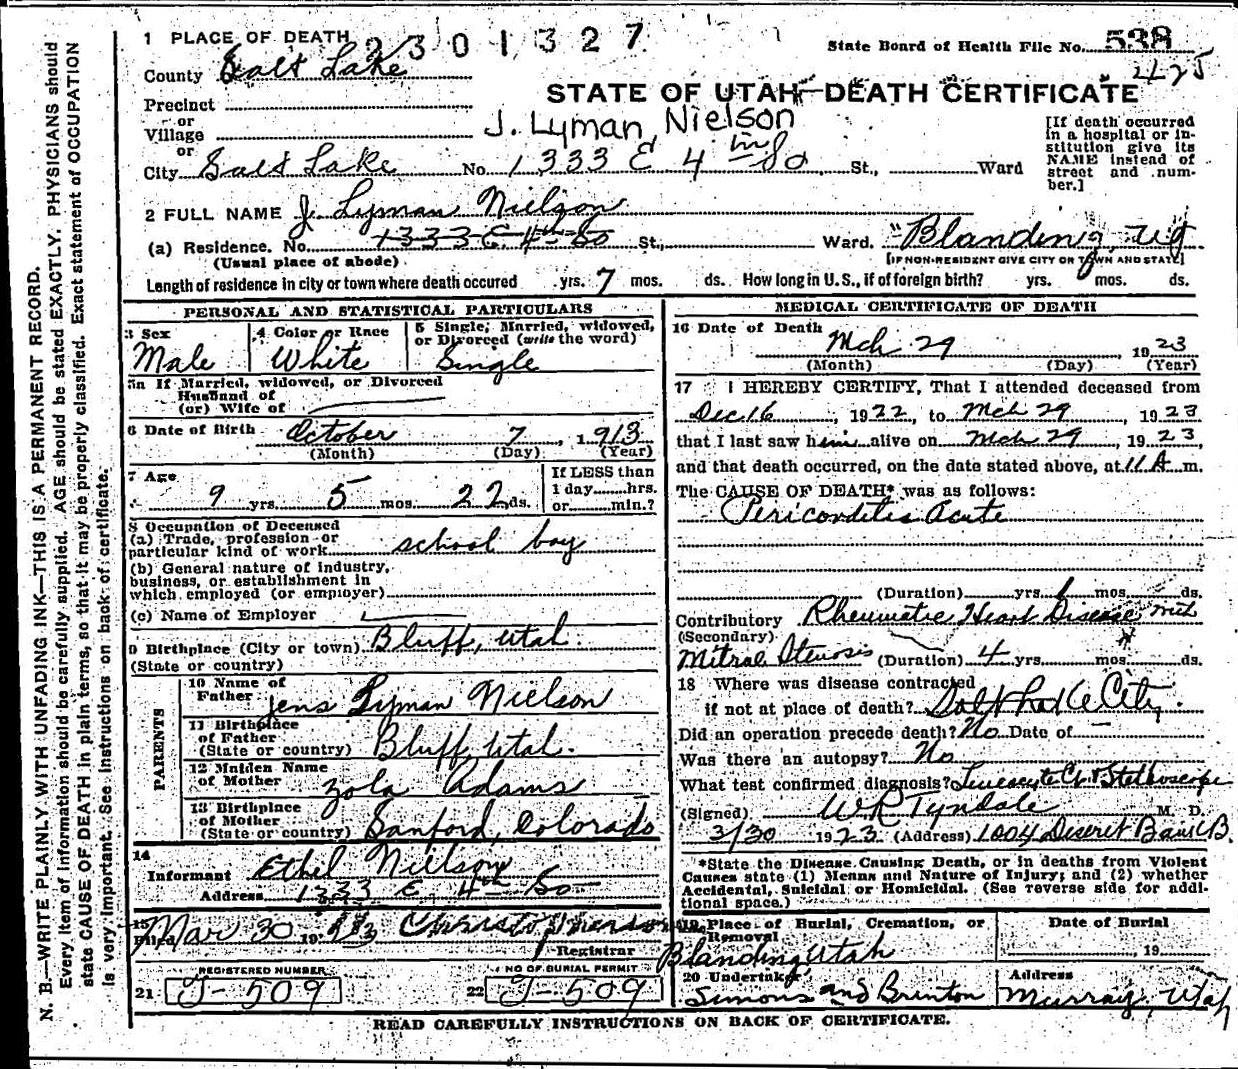 1 PLACE OF DEATH 2301327 State Board of Health File No. 538
County Salt Lake 2425
STATE OF UTAH—DEATH CERTIFICATE
Precinct
or
Village J. Lyman Nielson
or
City Salt Lake No. 1333 E 4th So St., Ward
[If death occurred in a hospital or institution give its NAME instead of street and number.]
2 FULL NAME J. Lyman Nielson
(a) Residence. No. 1333 E. 4th So St., Ward. "Blanding, Ut
(Usual place of abode) [IF NON-RESIDENT GIVE CITY OR TOWN AND STATE]
Length of residence in city or town where death occured yrs. 7 mos. ds. How long in U.S., if of foreign birth? yrs. mos. ds.
PERSONAL AND STATISTICAL PARTICULARS
3 Sex Male
4 Color or Race White
5 Single, Married, widowed, or Divorced (write the word) Single
5a If Married, widowed, or Divorced
Husband of
(or) Wife of
6 Date of Birth October 7, 1913
(Month) (Day) (Year)
7 Age 9 yrs 5 mos 22 ds.
If LESS than
1 day......hrs.
or......min.?
8 Occupation of Deceased
(a) Trade, profession or
particular kind of work school boy
(b) General nature of industry,
business, or establishment in
which employed (or employer)
(c) Name of Employer
9 Birthplace (City or town) Bluff, Utah.
(State or country)
PARENTS
10 Name of
Father Jens Lyman Nielson
11 Birthplace
of Father
(State or country) Bluff, Utah.
12 Maiden Name
of Mother Zola Adams
13 Birthplace
of Mother
(State or country) Sanford, Colorado
14
Informant Ethel Nielson
Address 1333 E 4th So
15
Filed Mar 30 1923 Christopherson
Registrar
21 REGISTERED NUMBER J-509
22 NO OF BURIAL PERMIT J-509
MEDICAL CERTIFICATE OF DEATH
16 Date of Death Mch 29, 1923
(Month) (Day) (Year)
17 I HEREBY CERTIFY, That I attended deceased from
Dec 16, 1922, to Mch 29, 1923
that I last saw him alive on Mch 29, 1923,
and that death occurred, on the date stated above, at 11 A m.
The CAUSE OF DEATH* was as follows:
Pericorditis Acute
(Duration) yrs. 1 mos. ds.
Contributory Rheumatic Heart Disease with
(Secondary)
Mitral Stenosis (Duration) 4 yrs. mos. ds.
18 Where was disease contracted
if not at place of death? Salt Lake City.
Did an operation precede death? No Date of —
Was there an autopsy? No
What test confirmed diagnosis? Stethoscope
(Signed) W R Tyndale M. D.
3/30 1923 (Address) 1004 Deseret Bank B.
*State the Disease Causing Death, or in deaths from Violent
Causes state (1) Means and Nature of Injury; and (2) whether
Accidental, Suicidal or Homicidal. (See reverse side for addi-
tional space.)
19 Place of Burial, Cremation, or
Removal
Blanding, Utah
Date of Burial
19
20 Undertaker
Simons and Brinton
Address
Murray, Utah
READ CAREFULLY INSTRUCTIONS ON BACK OF CERTIFICATE.
N. B.—WRITE PLAINLY WITH UNFADING INK—THIS IS A PERMANENT RECORD.
Every item of information should be carefully supplied. AGE should be stated EXACTLY. PHYSICIANS should
state CAUSE OF DEATH in plain terms, so that it may be properly classified. Exact statement of OCCUPATION
is very important. See instructions on back of certificate.